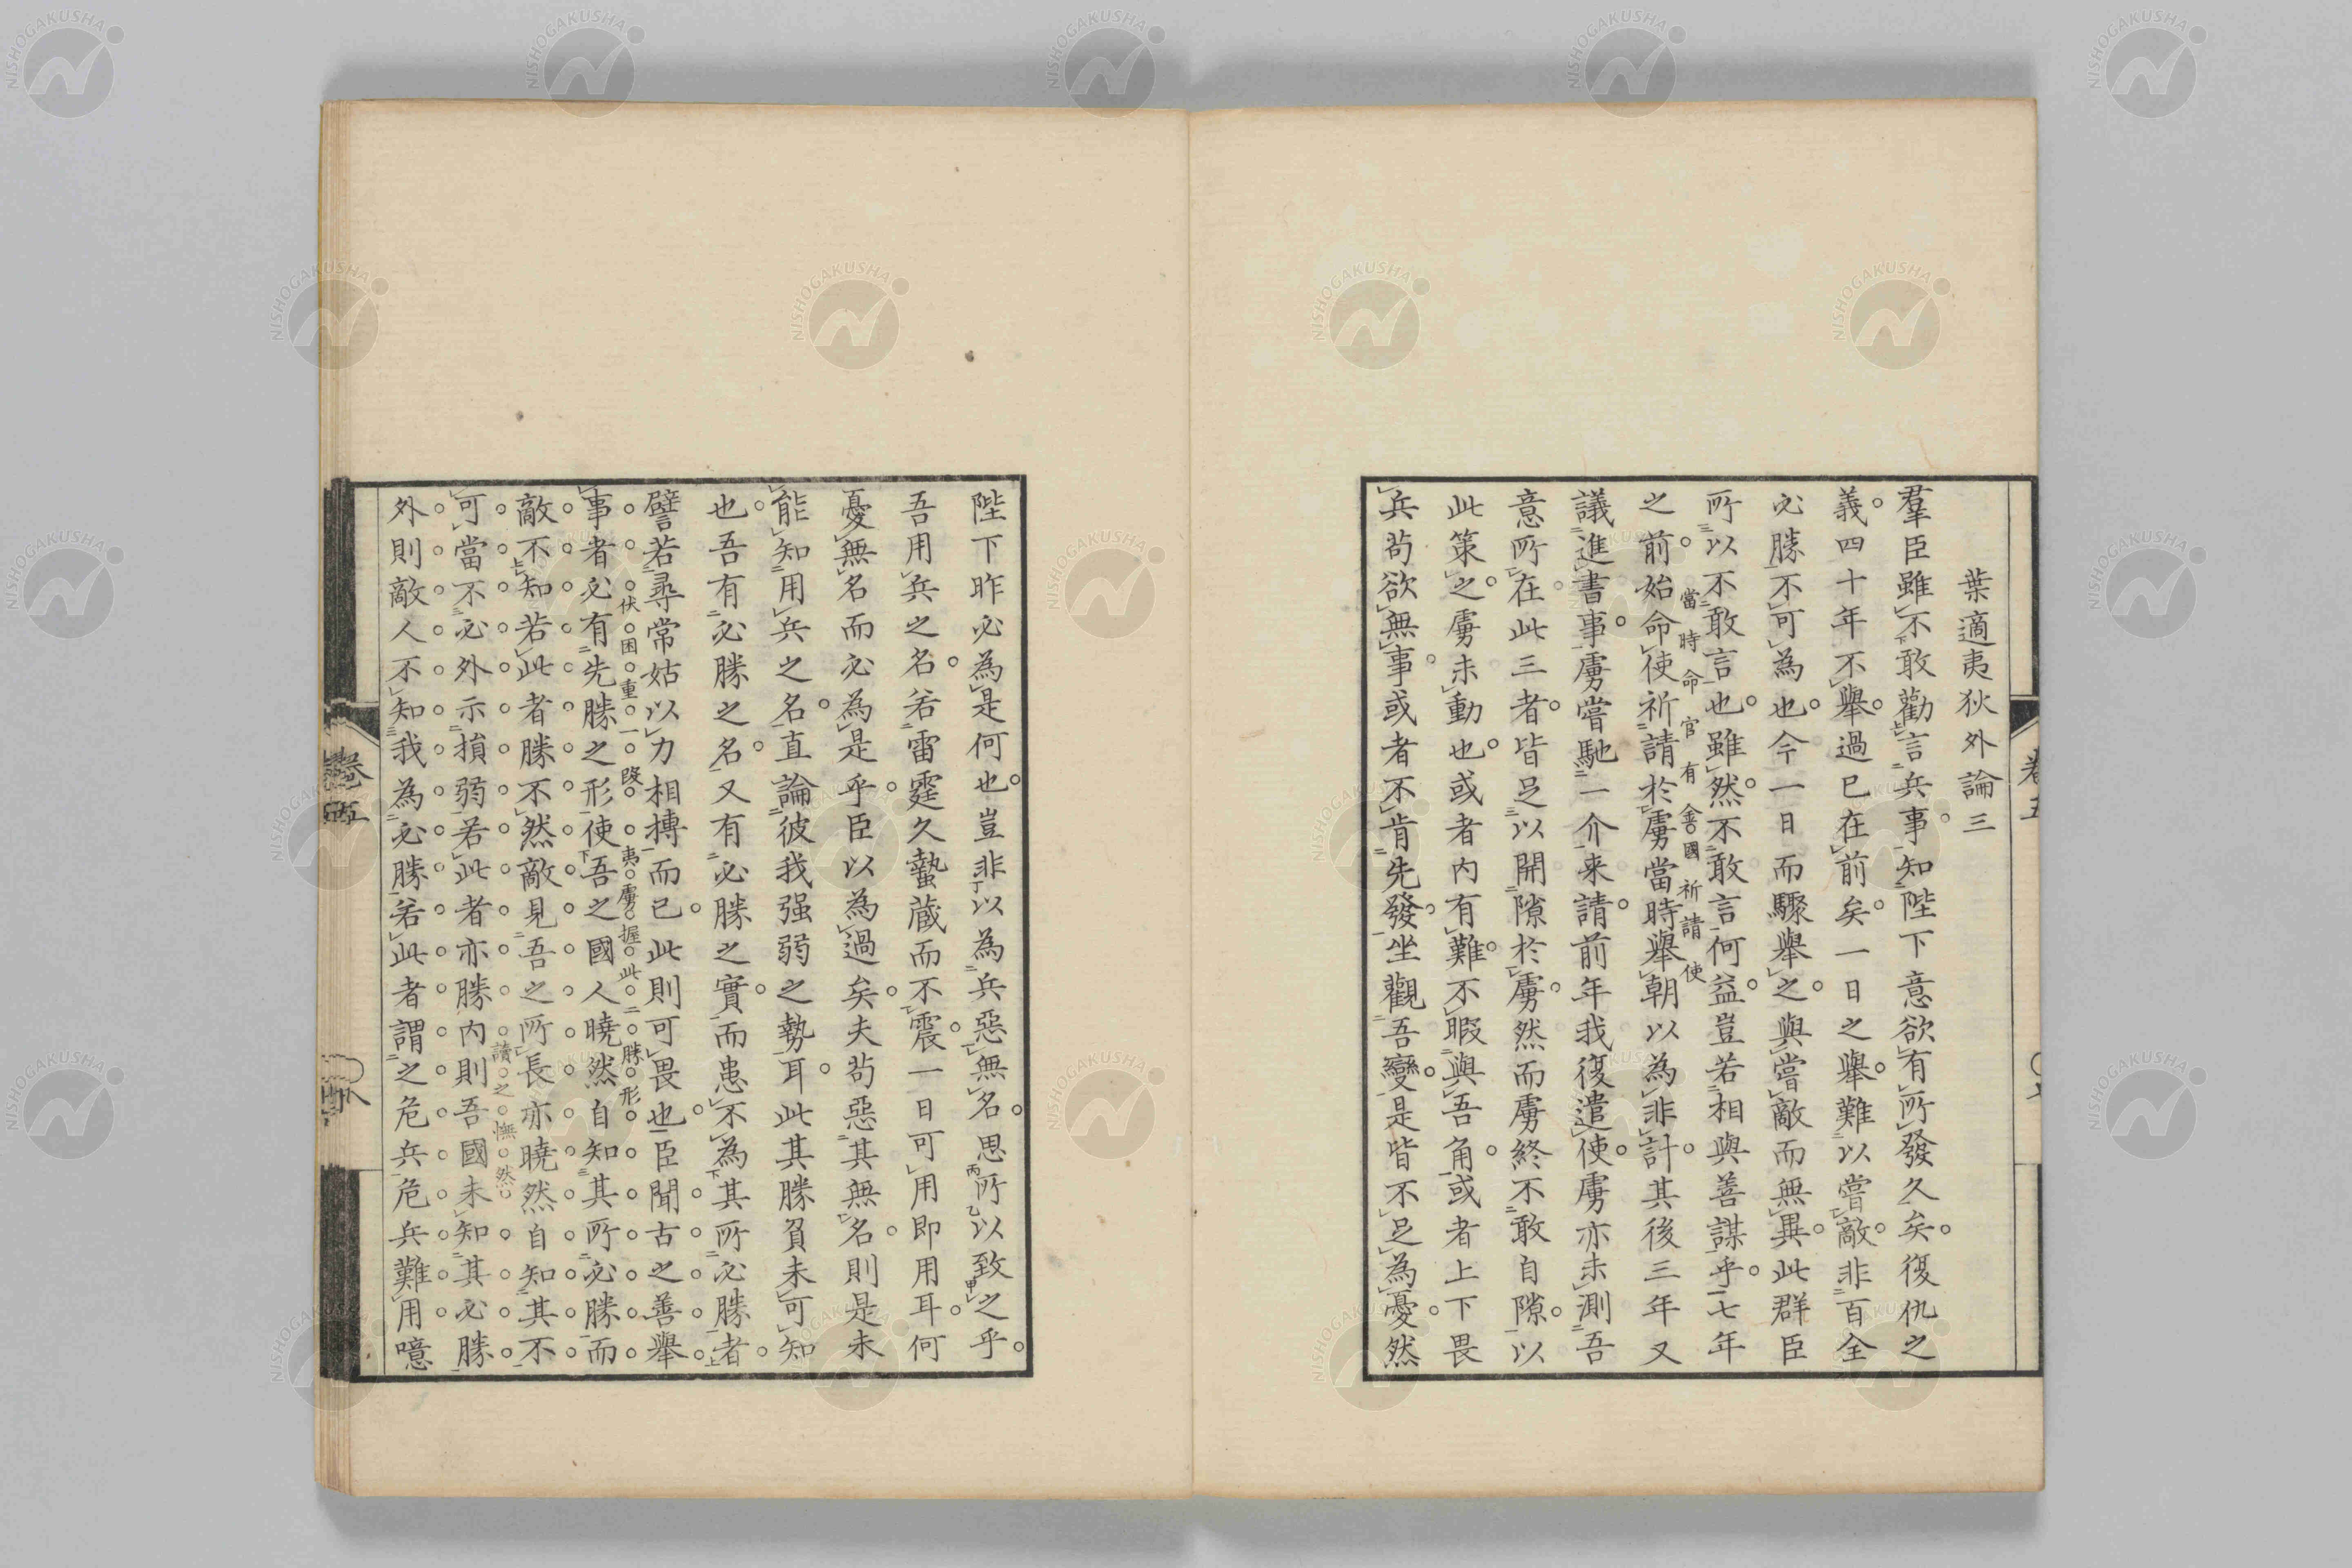 葉適夷狄外論三
羣臣雖不敢勸言兵事知陛下意欲有所發久矣復仇之
義四十年不舉過已在前矣一日之舉難以嘗敵非百全
必勝不可為也今一日而驟舉之與嘗敵而無異此群臣
所以不敢言也雖然不敢言何益豈若相與善謀乎七年
當時命官有金國祈請使
之前始命使祈請於虜當時舉朝以為非計其後三年又
議進書事虜嘗馳一介来請前年我復遣使虜亦未測吾
意所在此三者皆足以開隙於虜然而虜終不敢自隙以
此策之虜未動也或者內有難不暇與吾角或者上下畏
兵苟欲無事或者不肯先發坐觀吾變是皆不足為憂然
陛下昨必為是何也豈非以為兵惡無名思所以致之乎
吾用兵之名若雷霆久蟄蔵而不震一日可用即用耳何
憂無名而必為是乎臣以為過矣夫苟惡其無名則是未
能知用兵之名直論彼我强弱之勢耳此其勝負未可知
也吾有必勝之名又有必勝之實而患不為其所必勝者
譬若尋常姑以力相摶而已此則可畏也臣聞古之善舉
伏困重一段夷虜握此二勝形
事者必有先勝之形使吾之國人曉然自知其所必勝而
敵不知若此者勝不然敵見吾之所長亦曉然自知其不
讀之憮然
可當不必外示損弱若此者亦勝內則吾國未知其必勝
外則敵人不知我為必勝若此者謂之危兵危兵難用噫
卷五
卷五